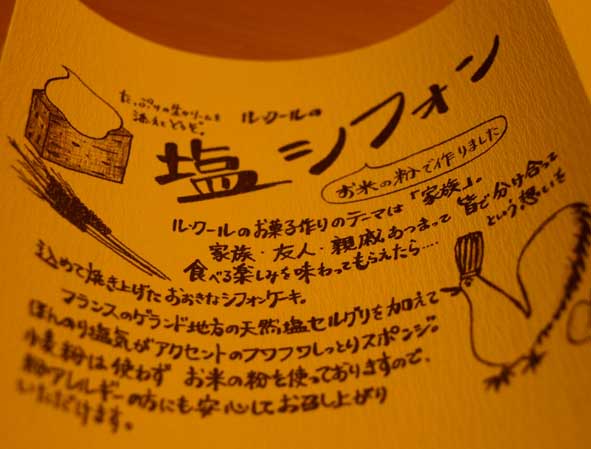 たっぷりの生クリームを
添えてどうぞ。
ル・クールの
塩シフォン
お米の粉で作りました
ル・クールのお菓子作りのテーマは「家族」。
家族・友人・親戚あつまって皆で分け合って
食べる楽しみを味わってもらえたら‥‥という想いも
込めて焼き上げたおおきなシフォンケーキ。
フランスのゲランド地方の天然塩セルグリを加えて
ほんのり塩気がアクセントのフワフワしっとりスポンジ。
小麦粉は使わず お米の粉を使っておりますので、
粉アレルギーの方にも安心してお召し上がり
いただけます。